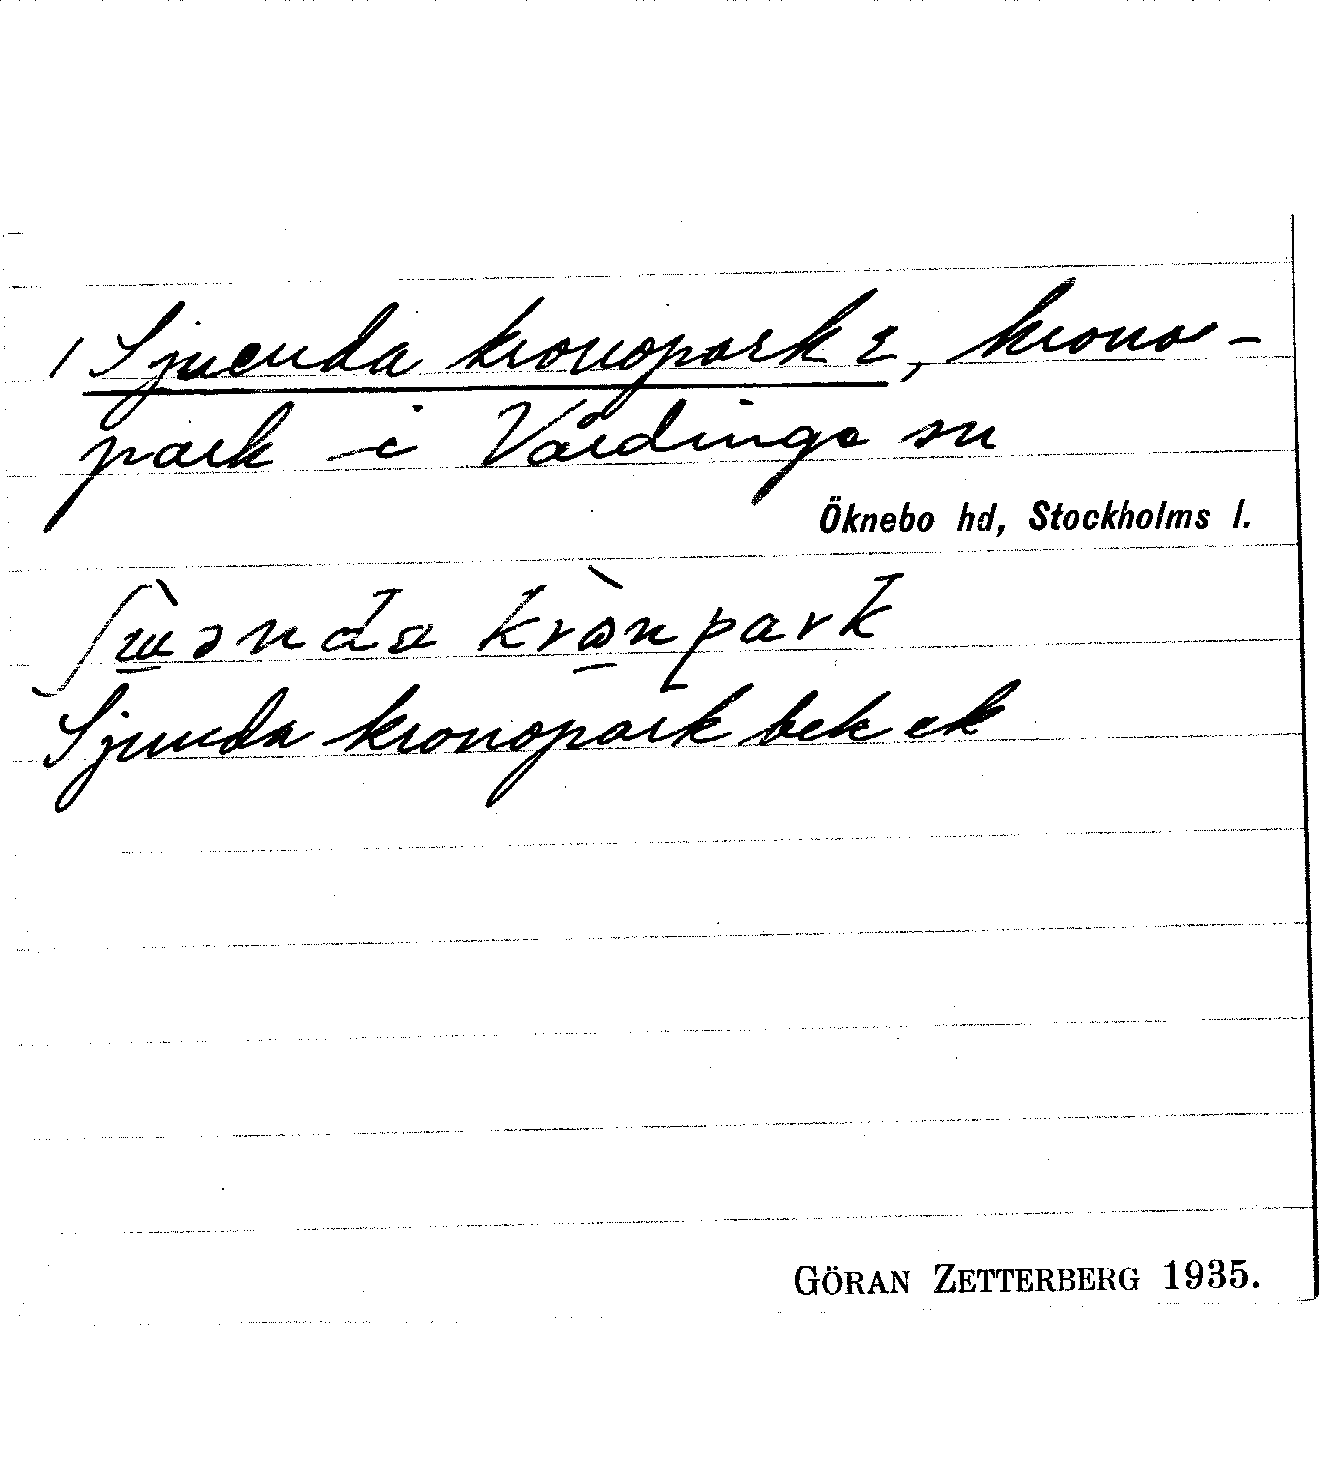 1 Sjuenda kronopark 2, krono-
park i Vårdinge sn
Öknebo hd, Stockholms l.
krònpark
Sjunda kronopark bek ek
GÖRAN ZETTERBERG 1935.